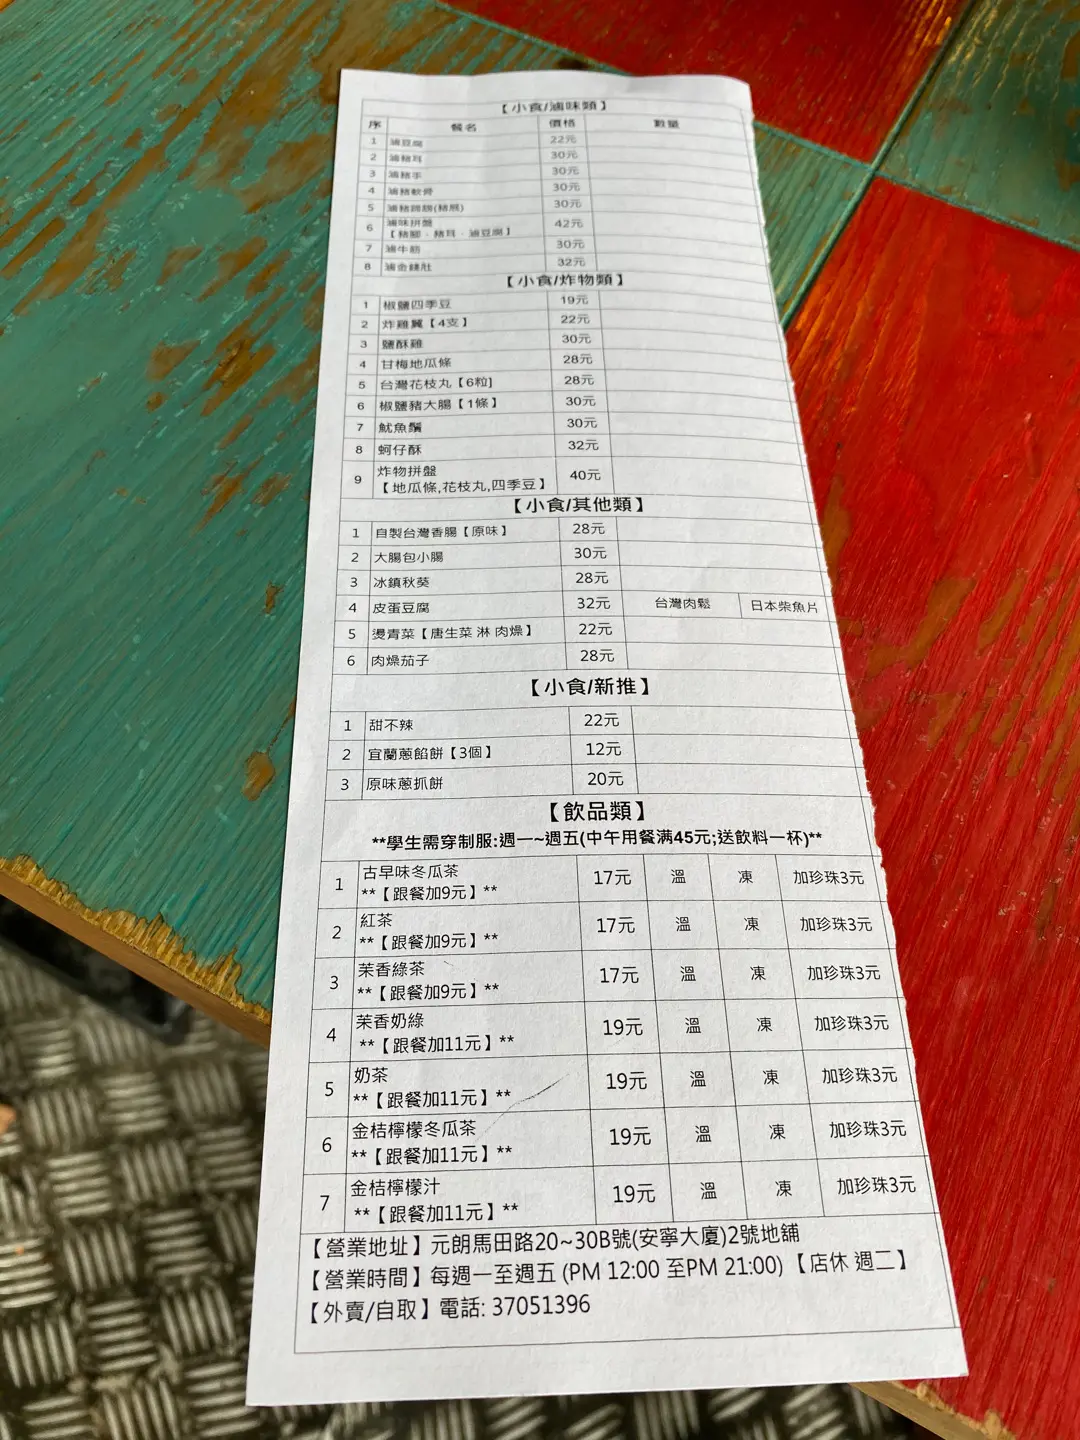 【小食/滷味類】
序 餐名 價格 數量
1 滷豆腐 22元
2 滷豬耳 30元
3 滷豬手 30元
4 滷豬軟骨 30元
5 滷豬蹄膀(豬展) 30元
6 滷味拼盤 42元
【豬腳．豬耳．滷豆腐】
7 滷牛筋 30元
8 滷金錢肚 32元
【小食/炸物類】
1 椒鹽四季豆 19元
2 炸雞翼【4支】 22元
3 鹽酥雞 30元
4 甘梅地瓜條 28元
5 台灣花枝丸【6粒] 28元
6 椒鹽豬大腸【1條】 30元
7 魷魚鬚 30元
8 蚵仔酥 32元
9 炸物拼盤 40元
【地瓜條,花枝丸,四季豆】
【小食/其他類】
1 自製台灣香腸【原味】 28元
2 大腸包小腸 30元
3 冰鎮秋葵 28元
4 皮蛋豆腐 32元 台灣肉鬆 日本柴魚片
5 燙青菜【唐生菜 淋 肉燥】 22元
6 肉燥茄子 28元
【小食/新推】
1 甜不辣 22元
2 宜蘭蔥餡餅【3個】 12元
3 原味蔥抓餅 20元
【飲品類】
**學生需穿制服:週一~週五(中午用餐满45元;送飲料一杯)**
1 古早味冬瓜茶 17元 溫 凍 加珍珠3元
**【跟餐加9元】**
2 紅茶 17元 溫 凍 加珍珠3元
**【跟餐加9元】**
3 茉香綠茶 17元 溫 凍 加珍珠3元
**【跟餐加9元】**
4 茉香奶綠 19元 溫 凍 加珍珠3元
**【跟餐加11元】**
5 奶茶 19元 溫 凍 加珍珠3元
**【跟餐加11元】**
6 金桔檸檬冬瓜茶 19元 溫 凍 加珍珠3元
**【跟餐加11元】**
7 金桔檸檬汁 19元 溫 凍 加珍珠3元
**【跟餐加11元】**
【營業地址】元朗馬田路20~30B號(安寧大廈)2號地舖
【營業時間】每週一至週五 (PM 12:00 至PM 21:00)【店休 週二】
【外賣/自取】電話: 37051396